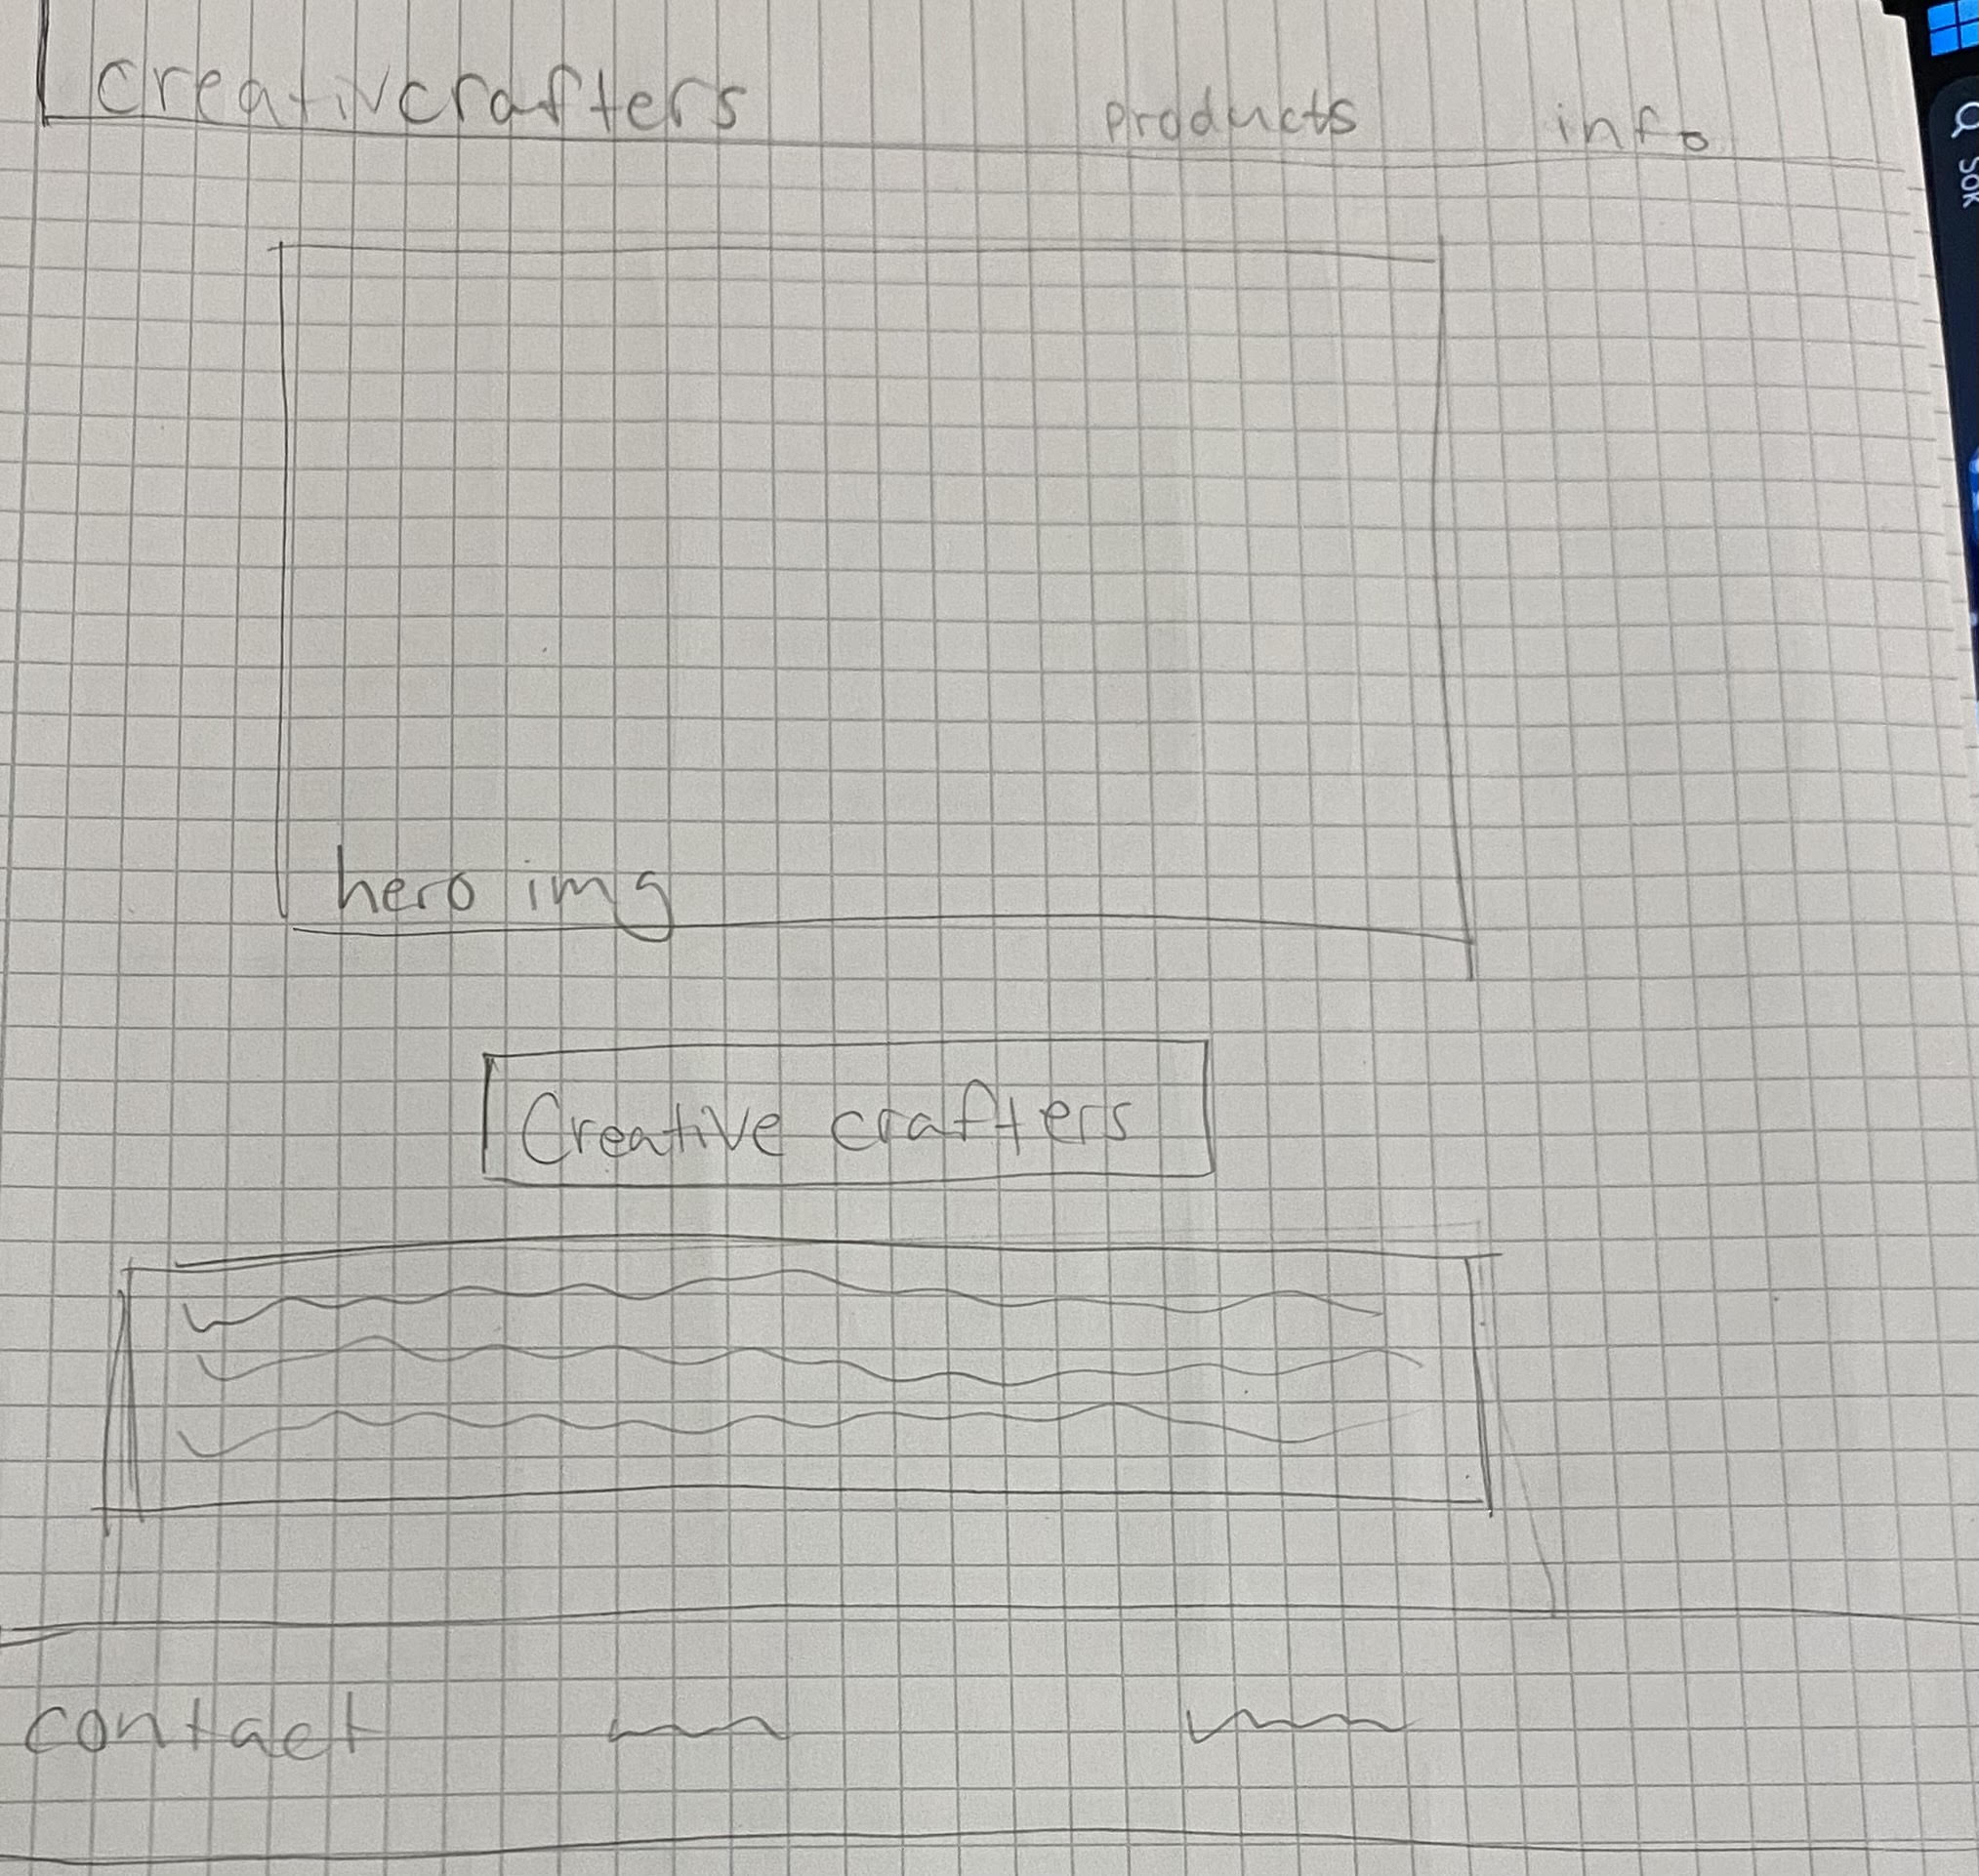 creativcrafters products info
hero img
Creative crafters
contact
Sök